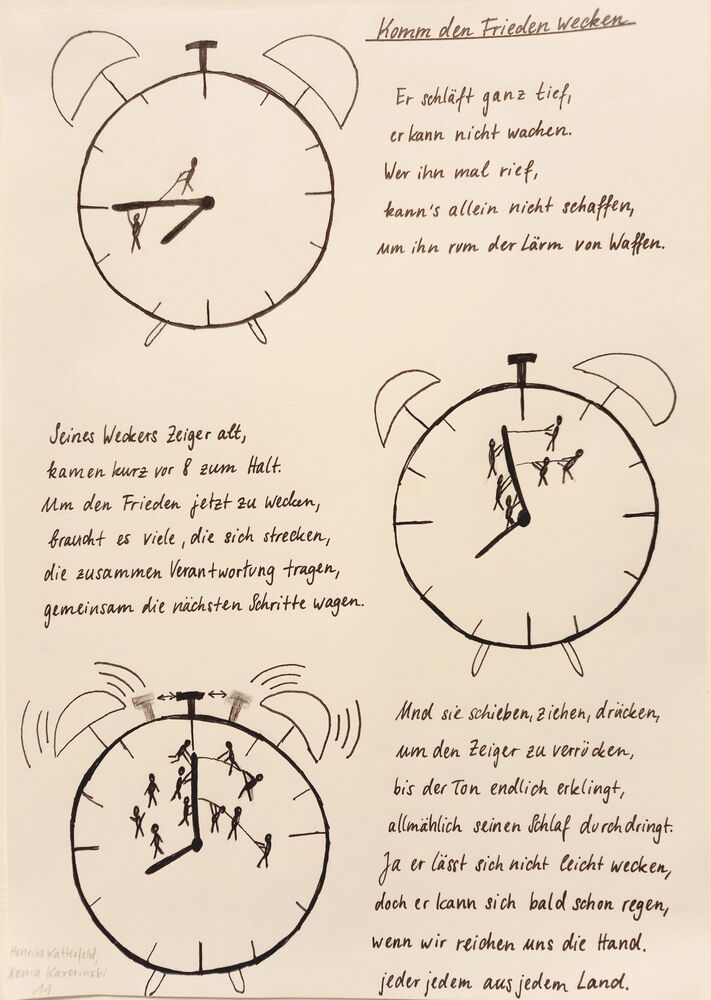 Komm den Frieden wecken
Er schläft ganz tief,
er kann nicht wachen.
Wer ihn mal rief,
kann's allein nicht schaffen,
um ihn rum der Lärm von Waffen.
Seines Weckers Zeiger alt,
kamen kurz vor 8 zum Halt.
Um den Frieden jetzt zu wecken,
braucht es viele, die sich strecken,
die zusammen Verantwortung tragen,
gemeinsam die nächsten Schritte wagen.
Und sie schieben, ziehen, drücken,
um den Zeiger zu verrücken,
bis der Ton endlich erklingt,
allmählich seinen Schlaf durchdringt.
Ja er lässt sich nicht leicht wecken,
doch er kann sich bald schon regen,
wenn wir reichen uns die Hand.
jeder jedem aus jedem Land.
Katterfeld,
Xenia
11